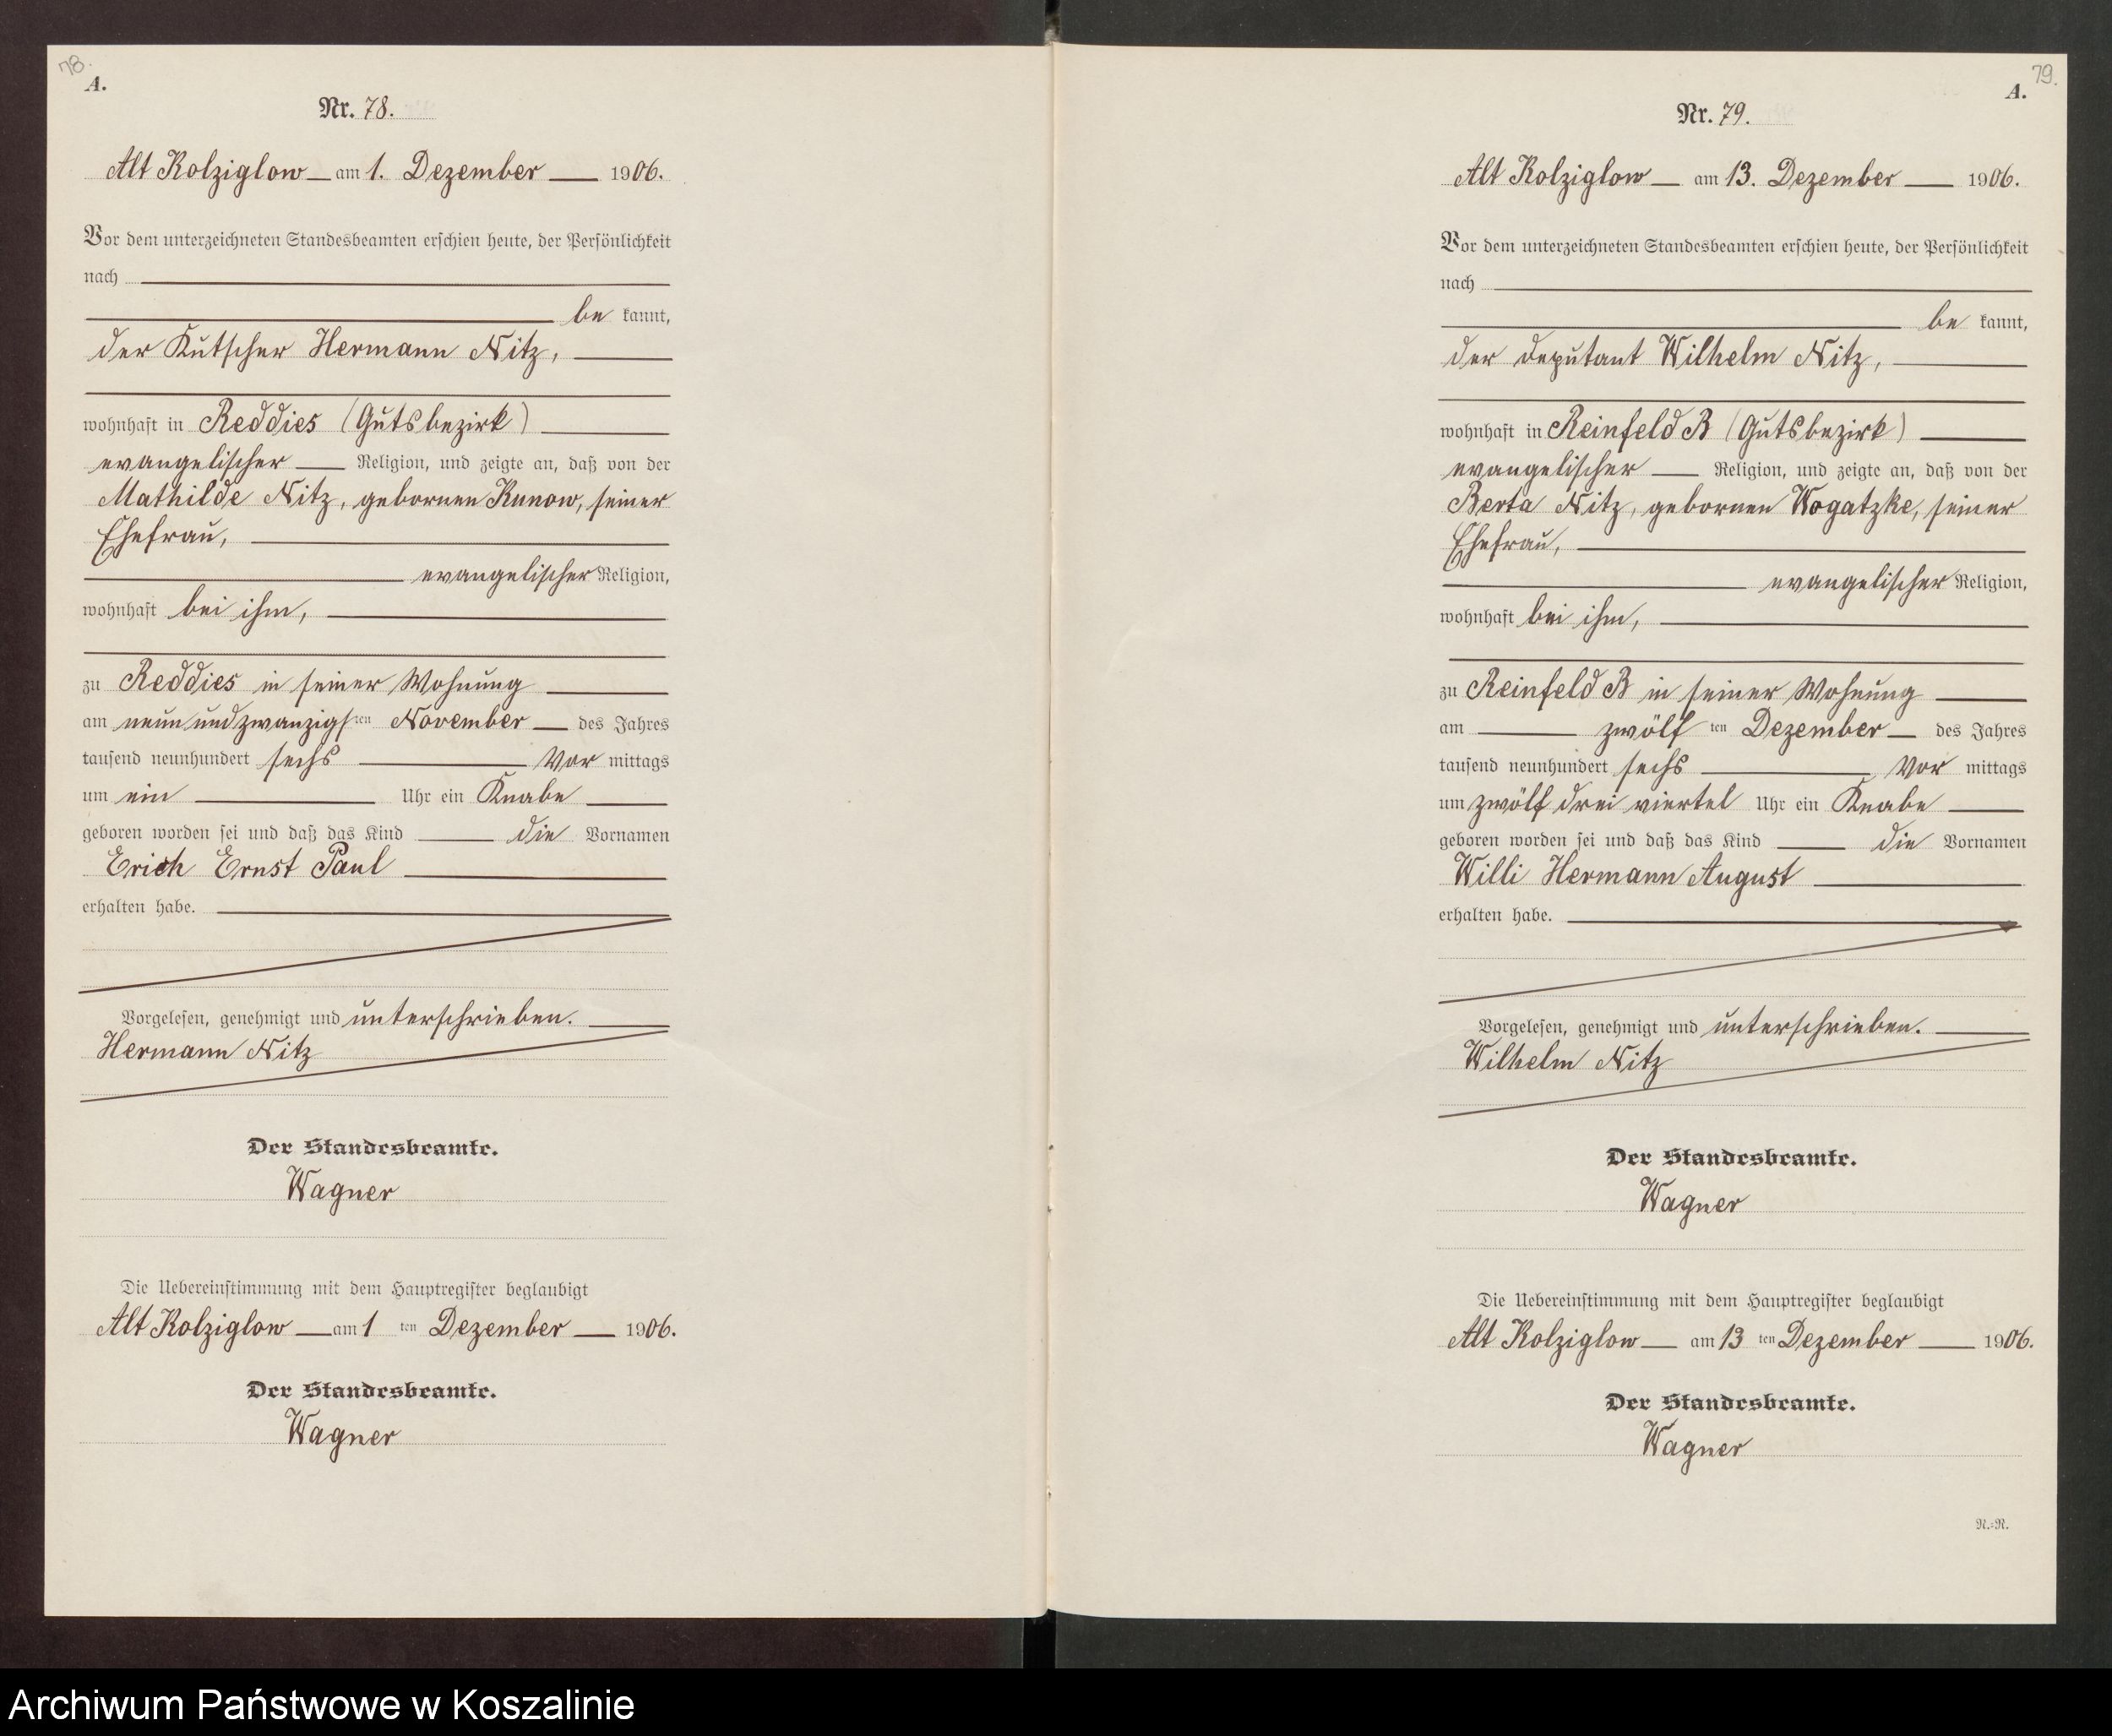 78.
A.
Nr. 78.
Alt Kolziglow am 1. Dezember 1906.
Vor dem unterzeichneten Standesbeamten erschien heute, der Persönlichkeit
nach
be kannt,
der Kutscher Hermann Nitz,
wohnhaft in Reddies (Gutsbezirk)
evangelischer Religion, und zeigte an, daß von der
Mathilde Nitz, gebornen Kunow, seiner
Ehefrau,
evangelischer Religion,
wohnhaft bei ihm,
zu Reddies in seiner Wohnung
am neun und zwanzigsten November des Jahres
tausend neunhundert sechs Vor mittags
um ein Uhr ein Knabe
geboren worden sei und daß das Kind die Vornamen
Erich Ernst Paul
erhalten habe.
Vorgelesen, genehmigt und unterschrieben.
Hermann Nitz
Der Standesbeamte.
Wagner
Die Uebereinstimmung mit dem Hauptregister beglaubigt
Alt Kolziglow am 1 ten Dezember 1906.
Der Standesbeamte.
Wagner
79.
A.
Nr. 79.
Alt Kolziglow am 13. Dezember 1906.
Vor dem unterzeichneten Standesbeamten erschien heute, der Persönlichkeit
nach
be kannt,
der Deputant Wilhelm Nitz,
wohnhaft in Reinfeld B (Gutsbezirk)
evangelischer Religion, und zeigte an, daß von der
Berta Nitz, gebornen Wogatzke, seiner
Ehefrau,
evangelischer Religion,
wohnhaft bei ihm,
zu Reinfeld B in seiner Wohnung
am zwölf ten Dezember des Jahres
tausend neunhundert sechs Vor mittags
um zwölf drei viertel Uhr ein Knabe
geboren worden sei und daß das Kind die Vornamen
Willi Hermann August
erhalten habe.
Vorgelesen, genehmigt und unterschrieben.
Wilhelm Nitz
Der Standesbeamte.
Wagner
Die Uebereinstimmung mit dem Hauptregister beglaubigt
Alt Kolziglow am 13 ten Dezember 1906.
Der Standesbeamte.
Wagner
N.=R.
Archiwum Państwowe w Koszalinie